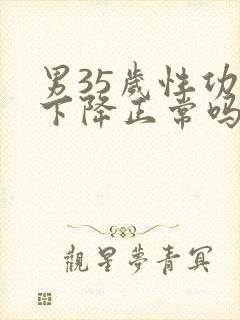 男35岁性功
下降正常吗
觀星夢青冥